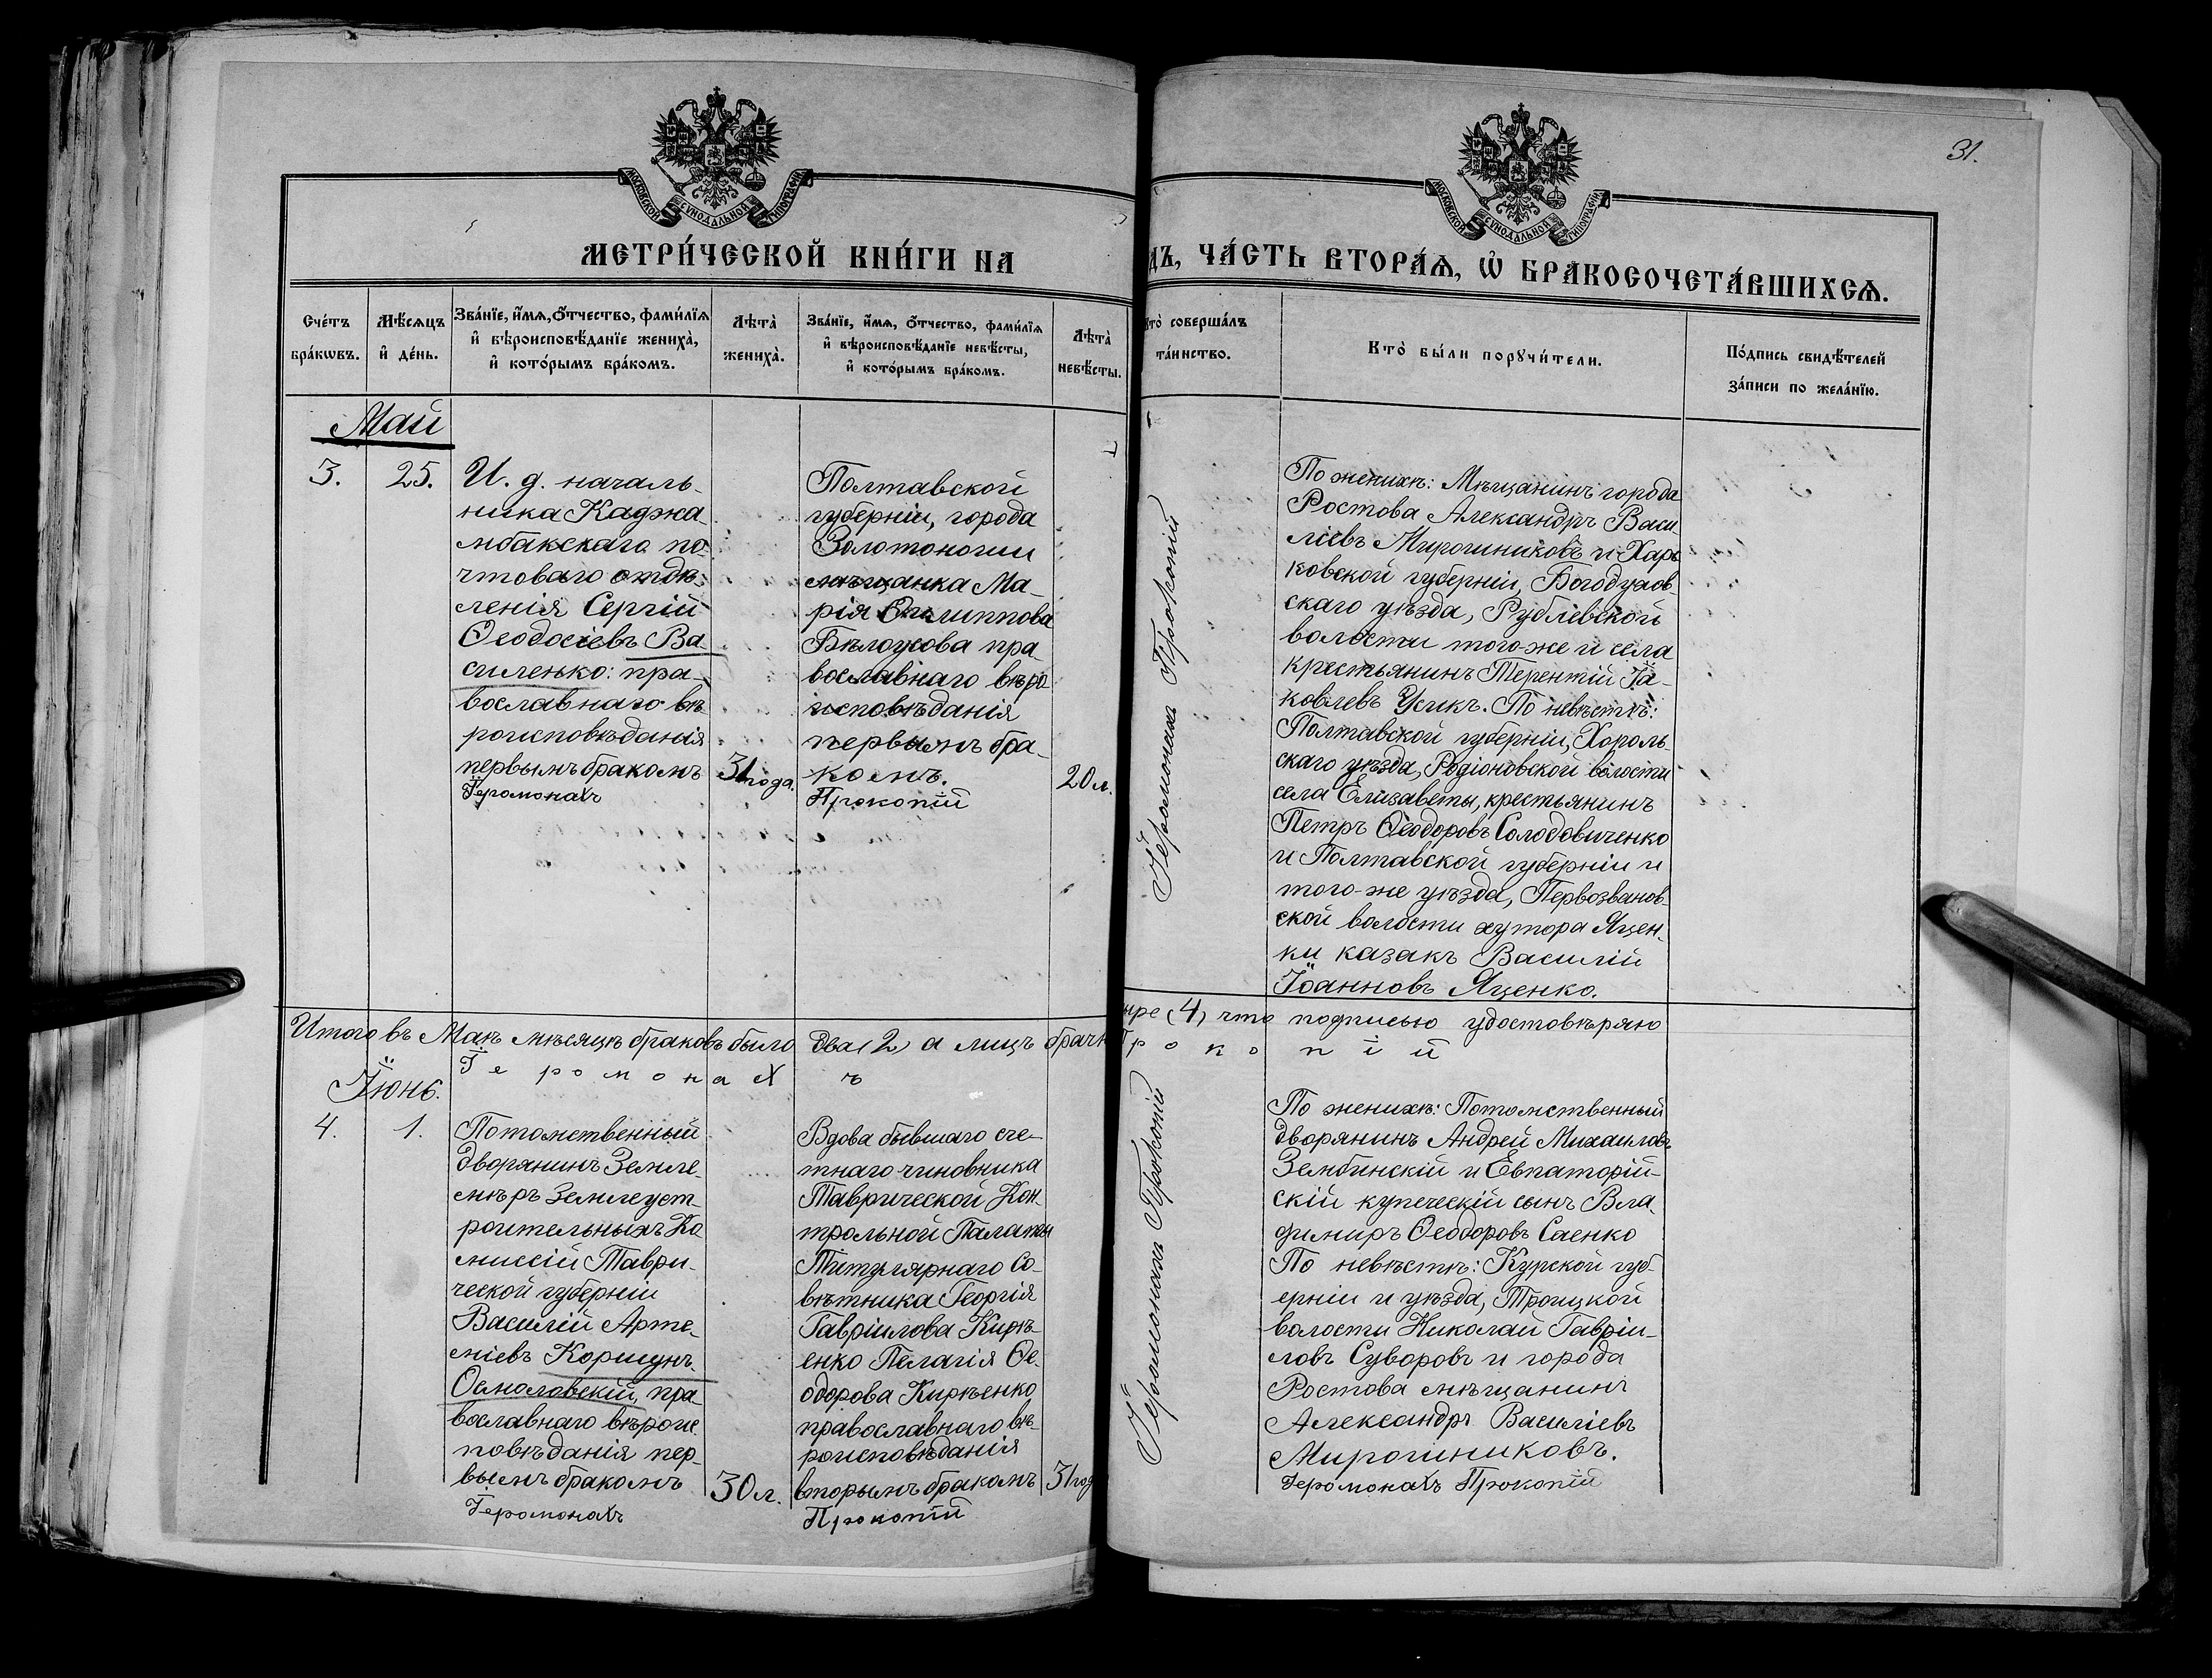 31.
МОСКОВСКОЙ СѴНОДАЛЬНОЙ ТИПОГРАФІИ
МОСКОВСКОЙ СѴНОДАЛЬНОЙ ТИПОГРАФІИ
МЕТРИ́ЧЕСКОЙ КНИ́ГИ НА
ДЪ, ЧА́СТЬ ВТОРА́Ѧ, Ѡ БРАКОСОЧЕТА́ВШИХСѦ.
Сче́тъ
бра́кѡвъ.
Мѣ́сѧцъ
и҆ де́нь.
Зва́нїе, и҆́мѧ, ѻ҆́тчество, фами́лїѧ
и҆ вѣроисповѣ́данїе жениха̀,
и҆ кото́рымъ бра́комъ.
Лѣта̀
жениха̀.
Зва́нїе, и҆́мѧ, ѻ҆́тчество, фами́лїѧ
и҆ вѣроисповѣ́данїе невѣ́сты,
и҆ кото́рымъ бра́комъ.
Лѣта̀
невѣ́сты.
кто̀ соверша́лъ
та́инство.
Кто̀ бы́ли порꙋчи́тели.
По́дпись свидѣ́телей
за́писи по жела́нїю.
Май
3.
25.
И. д. началь-
ника Каджа-
мбакскаго по-
чтоваго отдѣ-
ленія Сергій
Ѳеодосіевъ Ва-
силенко: пра-
вославнаго вѣ
роисповѣданія
первымъ бракомъ
Іеромонахъ
31 года.
Полтавской
губерніи, города
Золотоноши
мѣщанка Ма-
рія Филиппова
Бѣлоусова пра-
вославнаго вѣро
исповѣданія
первымъ бра-
комъ.
Прокопій
20 л.
Іеромонахъ Прокопій
По женихѣ: Мѣщанинъ города
Ростова Александръ Васи
ліевъ Мирошниковъ и Харь
ковской губерніи, Богодухов-
скаго уѣзда, Рублевской
волости того-же и села
крестьянинъ Терентій Іа-
ковлевъ Усикъ. По невѣстѣ:
Полтавской губерніи, Хороль-
скаго уѣзда, Родіоновской волости
села Елизаветы, крестьянинъ
Петръ Ѳеодоровъ Солодовиченко
и Полтавской губерніи и
того-же уѣзда, Первозванов-
ской волости хутора Яцен-
ки казакъ Василій
Іоанновъ Яценко.
Итого въ Маѣ мѣсяцѣ браковъ было два (2) а лицъ брач
ыре (4) что подписью удостовѣряю
Іеромонахъ
Прокопій
Іюнь.
4.
1.
Потомственный
дворянинъ Земле-
мѣръ Землеуст-
роительныхъ Ко
миссій Таври-
ческой губерніи
Василій Арте-
міевъ Коршунъ-
Осмоловскій, пра-
вославнаго вѣроис
повѣданія пер-
вымъ бракомъ
Іеромонахъ
30 л.
Вдова бывшаго сче-
тнаго чиновника
Таврической Кон-
трольной Палаты
Титулярнаго Со-
вѣтника Георгія
Гавріилова Кирѣ-
енко Пелагія Ѳе-
одорова Кирѣенко
православнаго вѣ-
роисповѣданія
вторымъ бракомъ
Прокопій
31 год
Іеромонахъ Прокопій
По женихѣ: Потомственный
дворянинъ Андрей Михаиловъ
Зембинскій и Евпаторій-
скій купеческій сынъ Вла-
димиръ Ѳеодоровъ Саенко
По невѣстѣ: Курской губ-
ерніи и уѣзда, Троицкой
волости Николай Гавріи-
ловъ Суворовъ и города
Ростова мѣщанинъ
Александръ Василіевъ
Мирошниковъ.
Іеромонахъ Прокопій